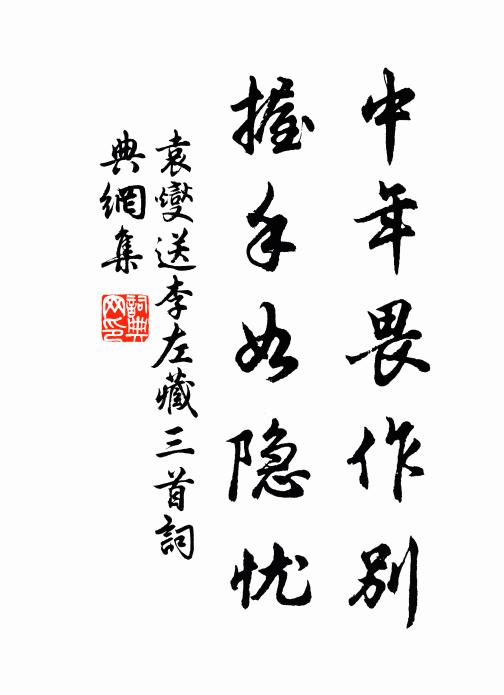 中年畏作别
握手如隐忧
袁燮送李左藏三首詞
典網集
詞典网印